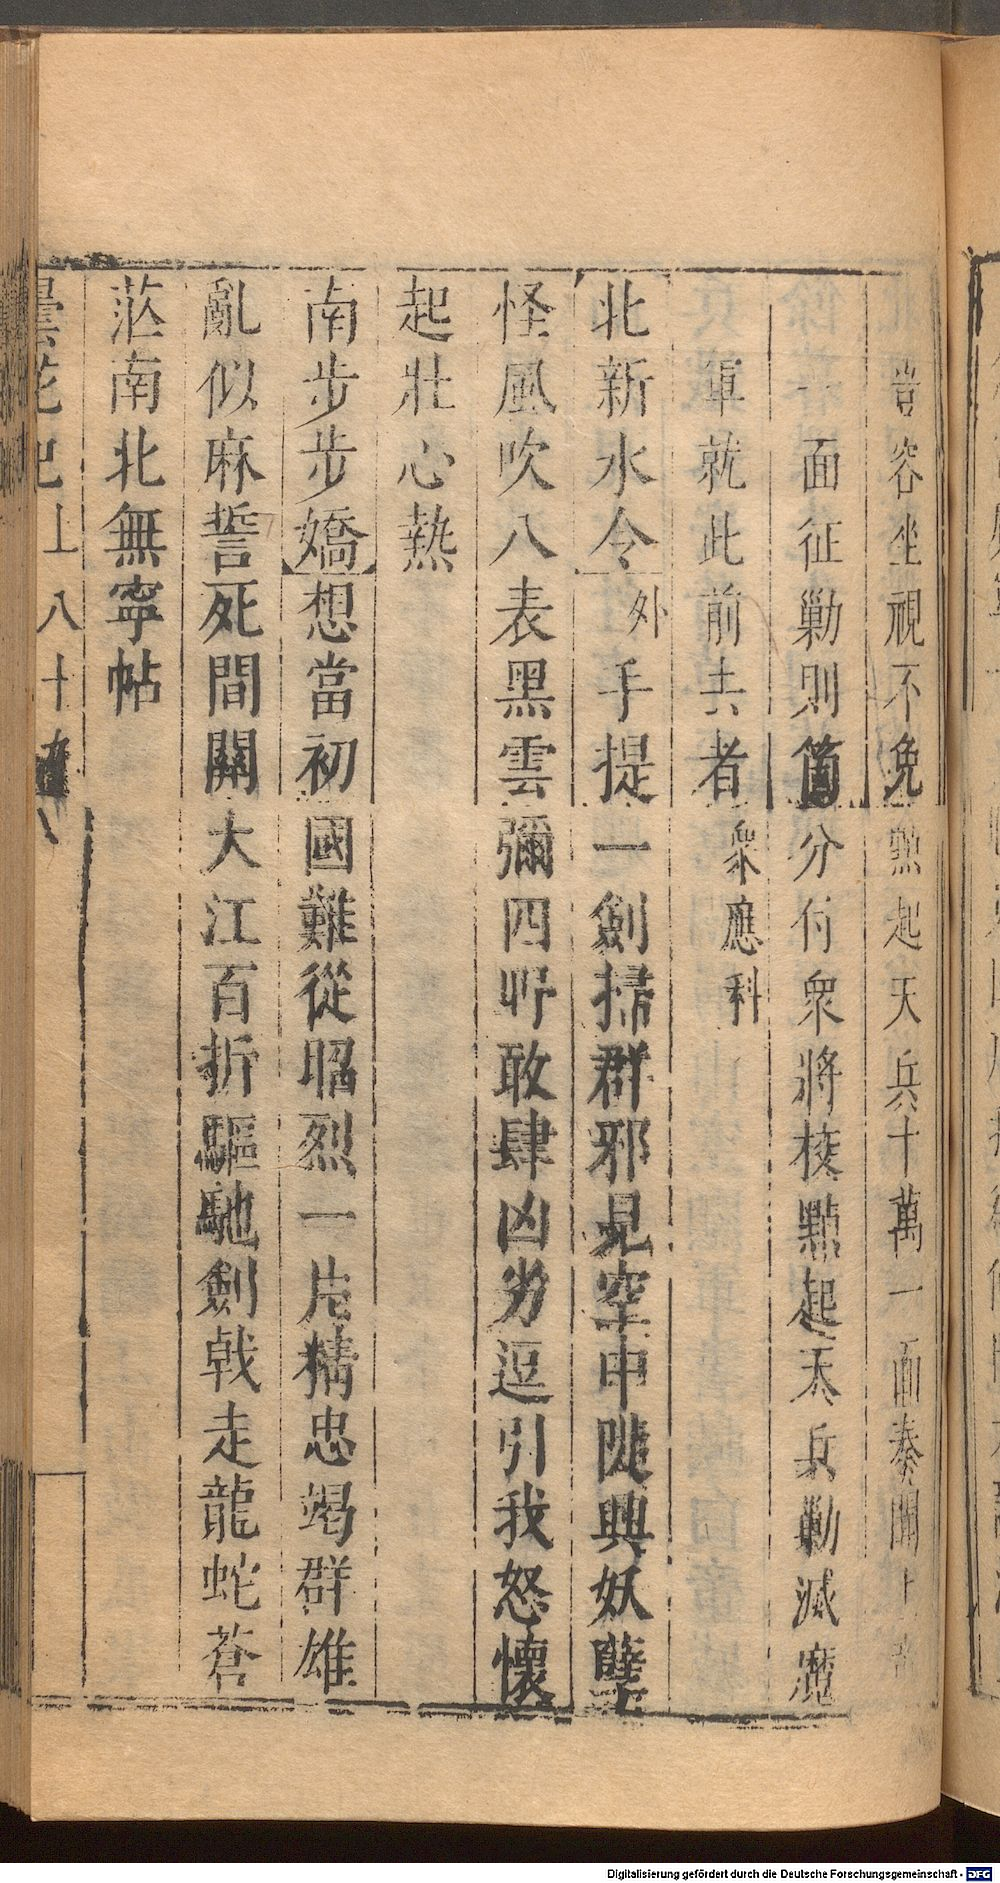 豈容坐視不免點起天兵十萬一面奏聞上帝
一面征勦則箇分付衆將校點起天兵勦滅魔
軍就此前去者衆應科
北新水令外手提一劍掃群邪見空中陡興妖孽
怪風吹八表黑雲彌四野敢肆凶劣逗引我怒懷
起壯心熱
南步步嬌想當初國難從昭烈一片精忠竭群雄
亂似麻誓死間關大江百折驅馳劍戟走龍蛇蒼
茫南北無寧帖
曇花記上八十
Digitalisierung gefördert durch die Deutsche Forschungsgemeinschaft - DFG